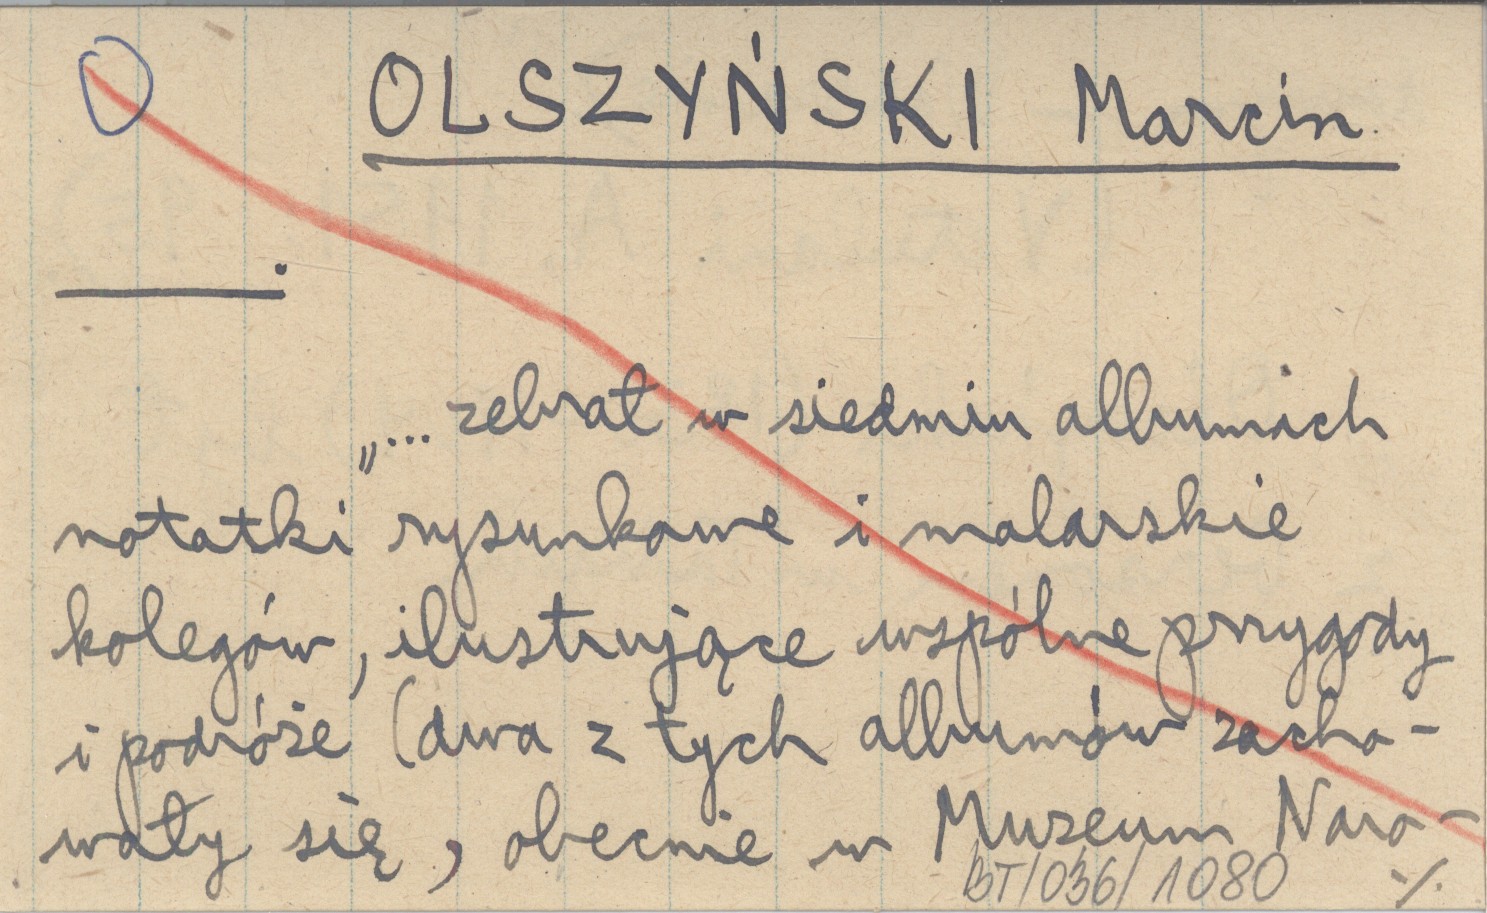 OLSZYŃSKI Marcin
„... zebrał w siedmiu albumach
notatki rysunkowe i malarskie
kolegów, ilustrujące wspólne przygody
i podróże (dwa z tych albumów zacho-
wały się, obecnie w Muzeum Naro-
BT/036/1080 ./.